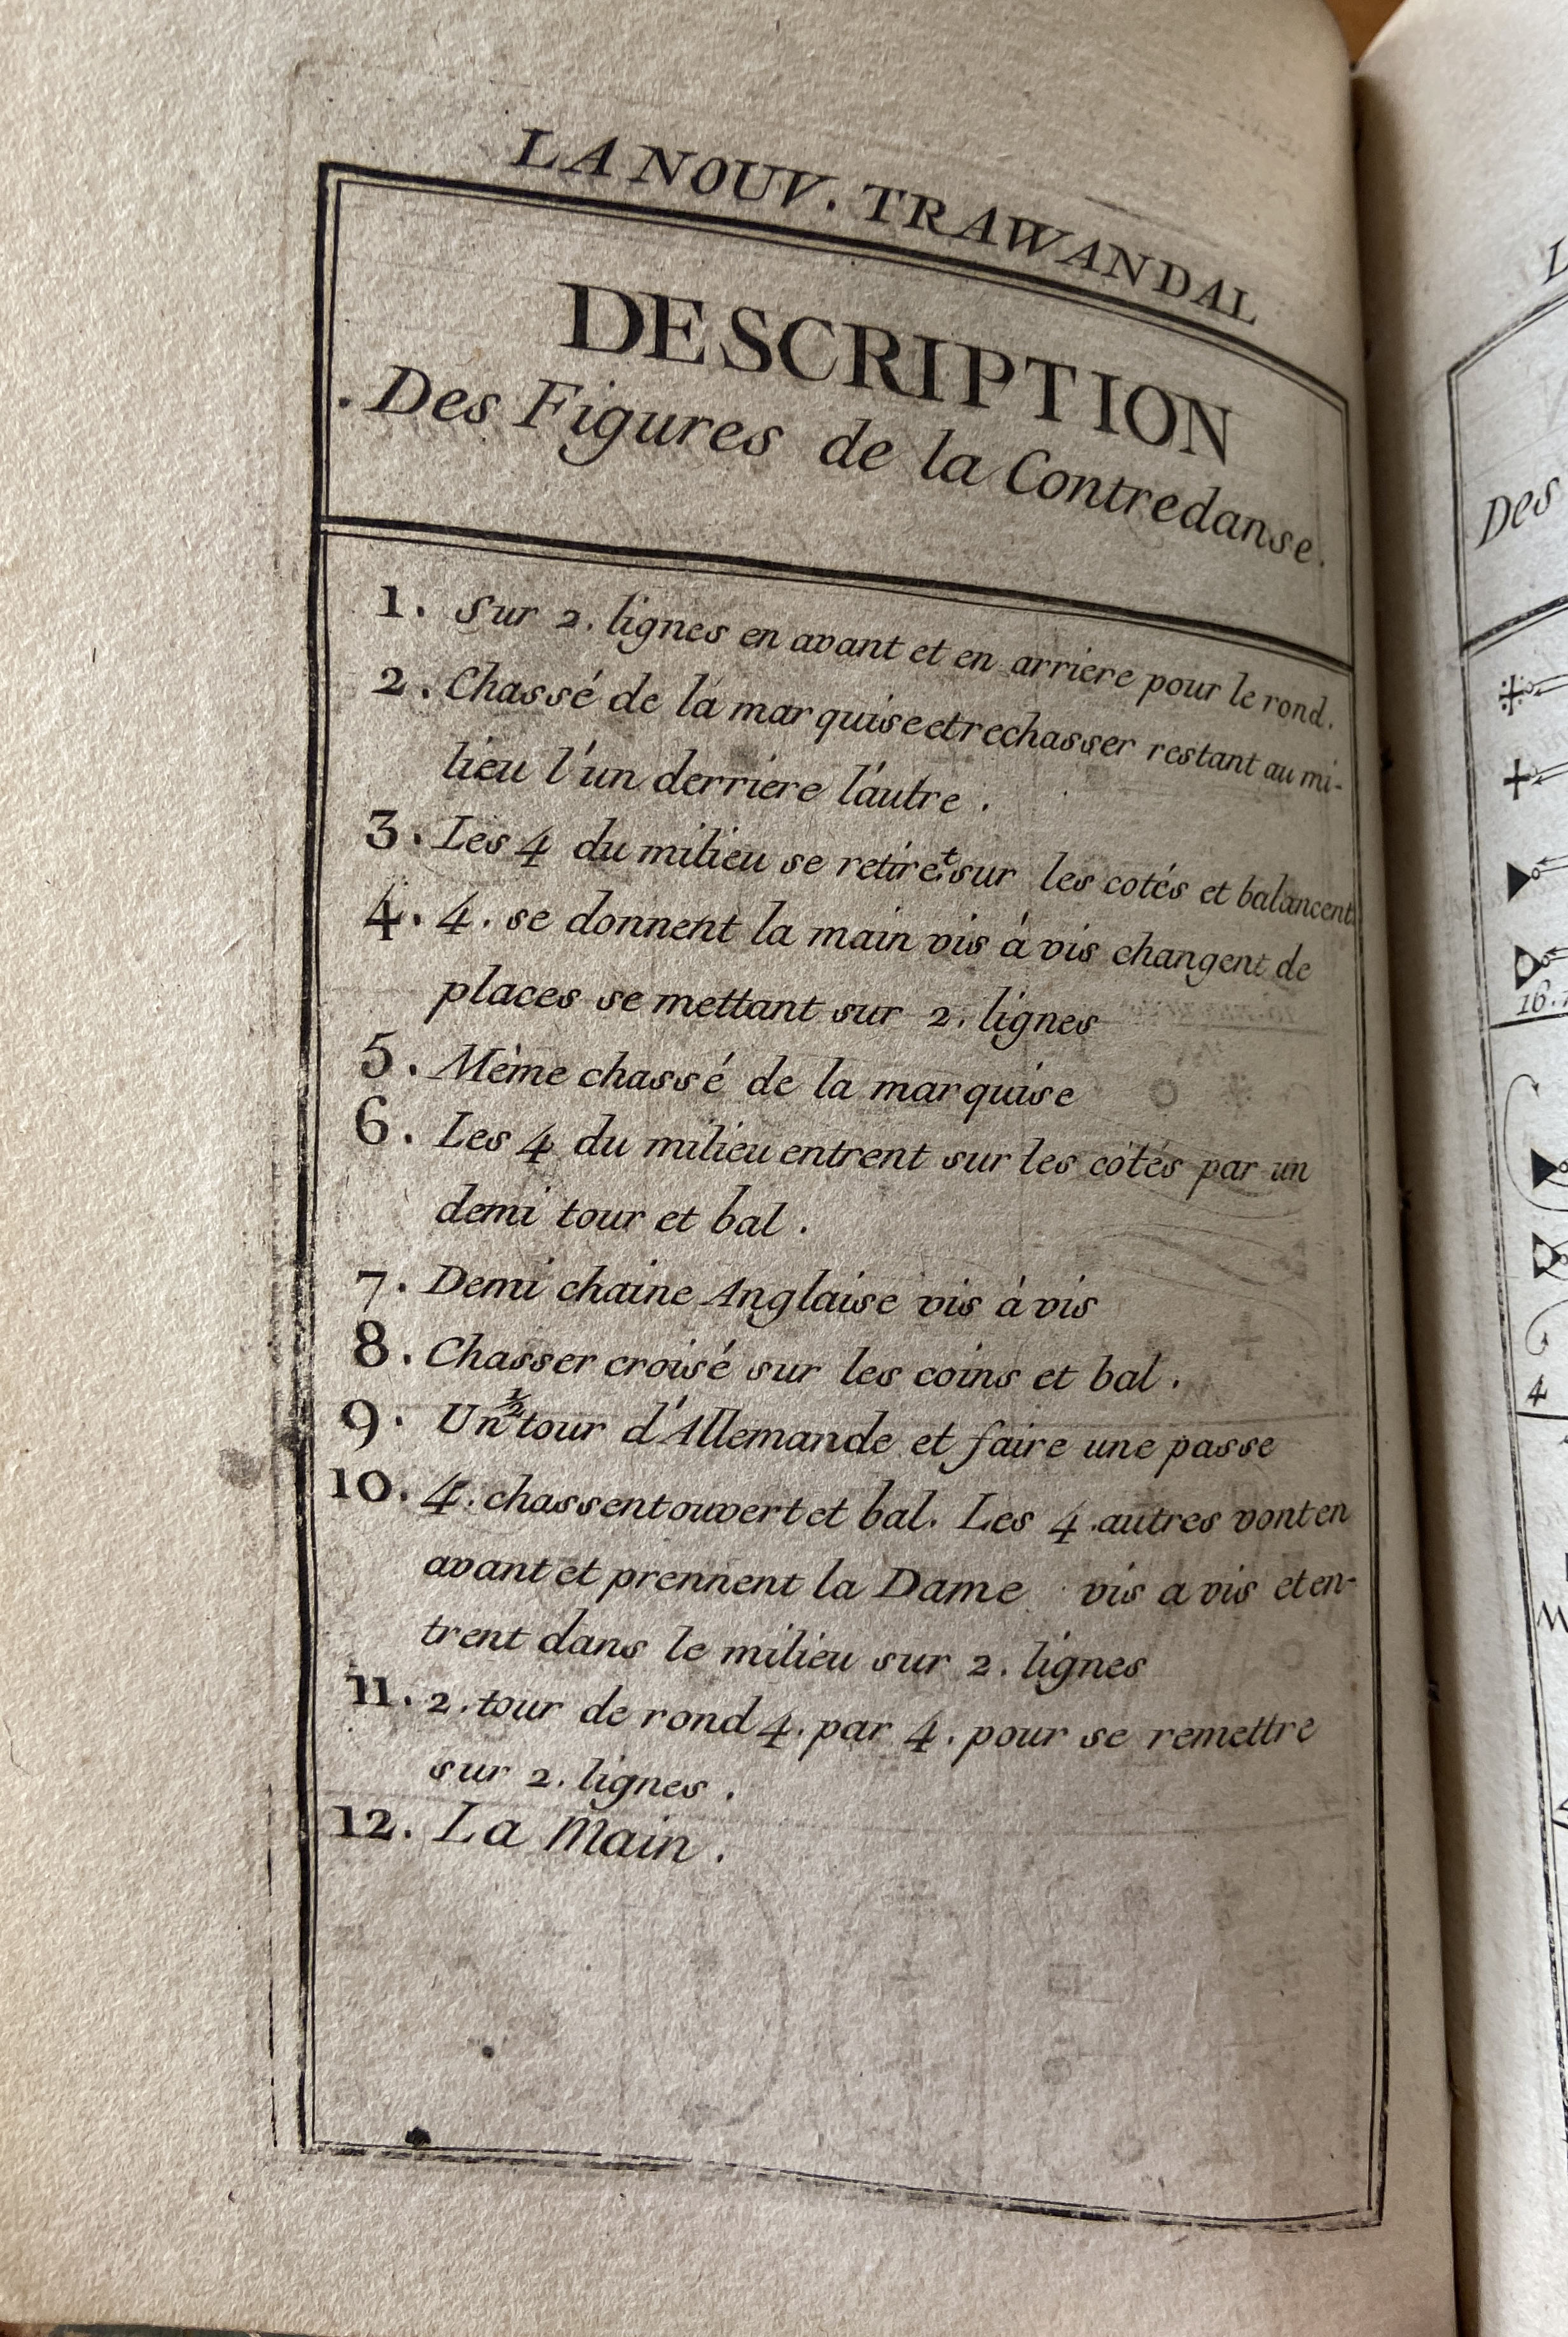 LA NOUV. TRAWANDAL
DESCRIPTION
Des Figures de la Contredanse.
1. Sur 2. lignes en avant et en arriere pour le rond.
2. Chassé de la marquise et rechasser restant au mi-
lieu l'un derriere l'autre.
3. Les 4 du milieu se retire.t sur les cotés et balancent.
4. 4. se donnent la main vis à vis changent de
places se mettant sur 2. lignes
5. Mème chassé de la marquise
6. Les 4 du milieu entrent sur les cotés par un
demi tour et bal.
7. Demi chaine Anglaise vis à vis
8. Chasser croisé sur les coins et bal.
9. Un ½ tour d'Allemande et faire une passe
10. 4. chassent ouvert et bal. Les 4. autres vont en
avant et prennent la Dame vis a vis et en-
trent dans le milieu sur 2. lignes
11. 2. tour de rond 4. par 4. pour se remettre
sur 2. lignes.
12. La Main.
Des
16.
4